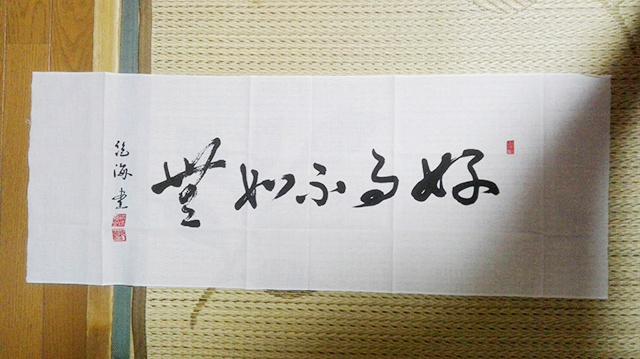 好事不如無
海書